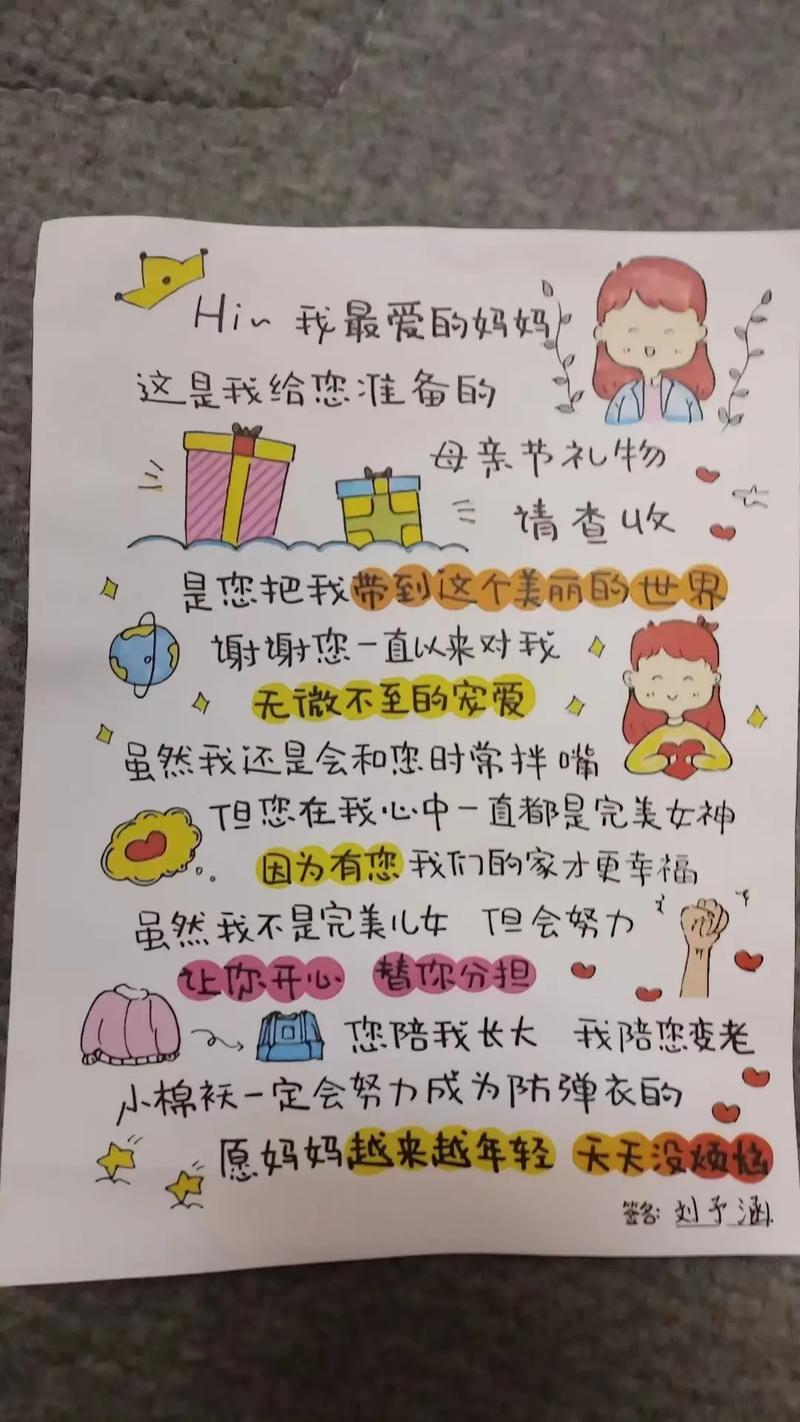 Hi~ 我最爱的妈妈
这是我给您准备的
母亲节礼物
请查收
是您把我带到这个美丽的世界
谢谢您一直以来对我
无微不至的宠爱
虽然我还是会和您时常拌嘴
但您在我心中一直都是完美女神
因为有您我们的家才更幸福
虽然我不是完美儿女 但会努力
让你开心 替你分担
您陪我长大 我陪您变老
小棉袄一定会努力成为防弹衣的
愿妈妈越来越年轻 天天没烦恼
签名: 刘予涵